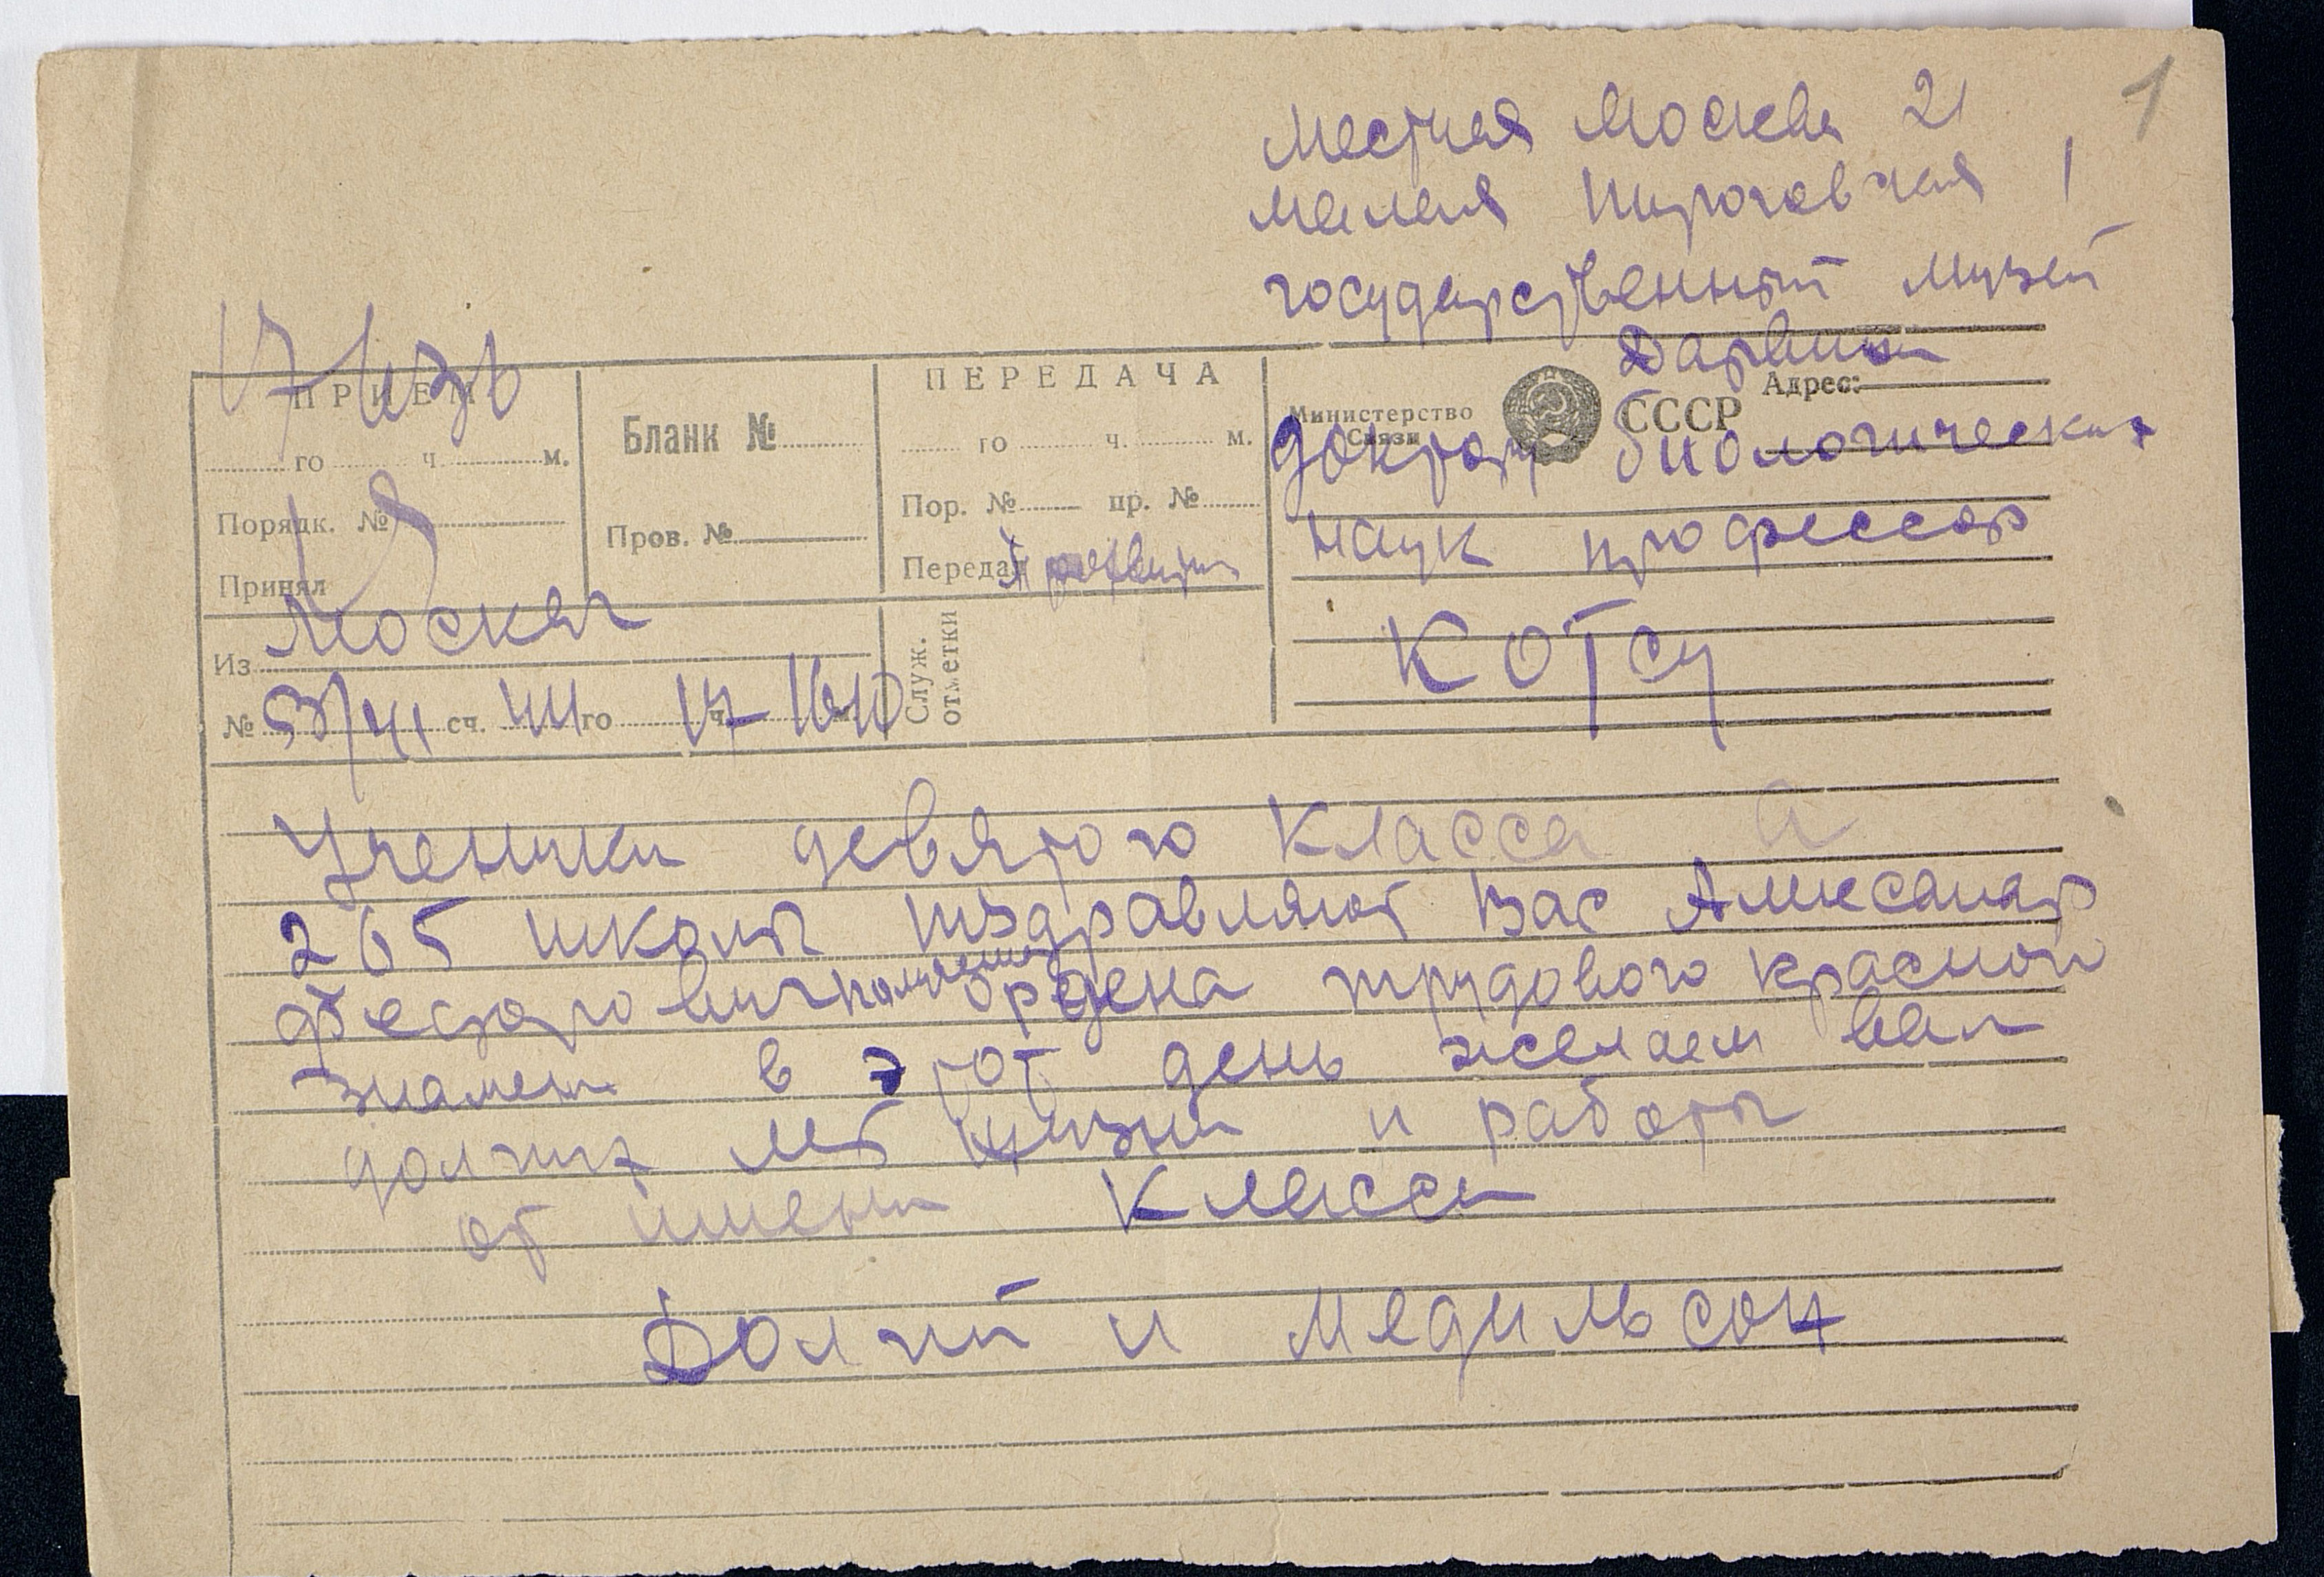 1
местная Москва 21
малая Пироговская 1
государственный музей
Дарвина
17 1636
ПРИЕМ
го ч. м.
Порядк. №
Принял
Бланк №
Пров. №
ПЕРЕДАЧА
го ч. м.
Пор. № пр. №
Передал
Министерство
Связи
СССР
Адрес:
доктору биологических
наук профессор
Котсу
Из Москвы
№ 53/41 сч. 44 го 17 ч. 1610 м.
Служ.
отметки
Ученики девятого класса а
265 школы поздравляют Вас Александр
Федорович получением ордена трудового красного
знамени в этот день желаем вам
долгих лет жизни и работы
от имени класса
Долгий и Медильсон